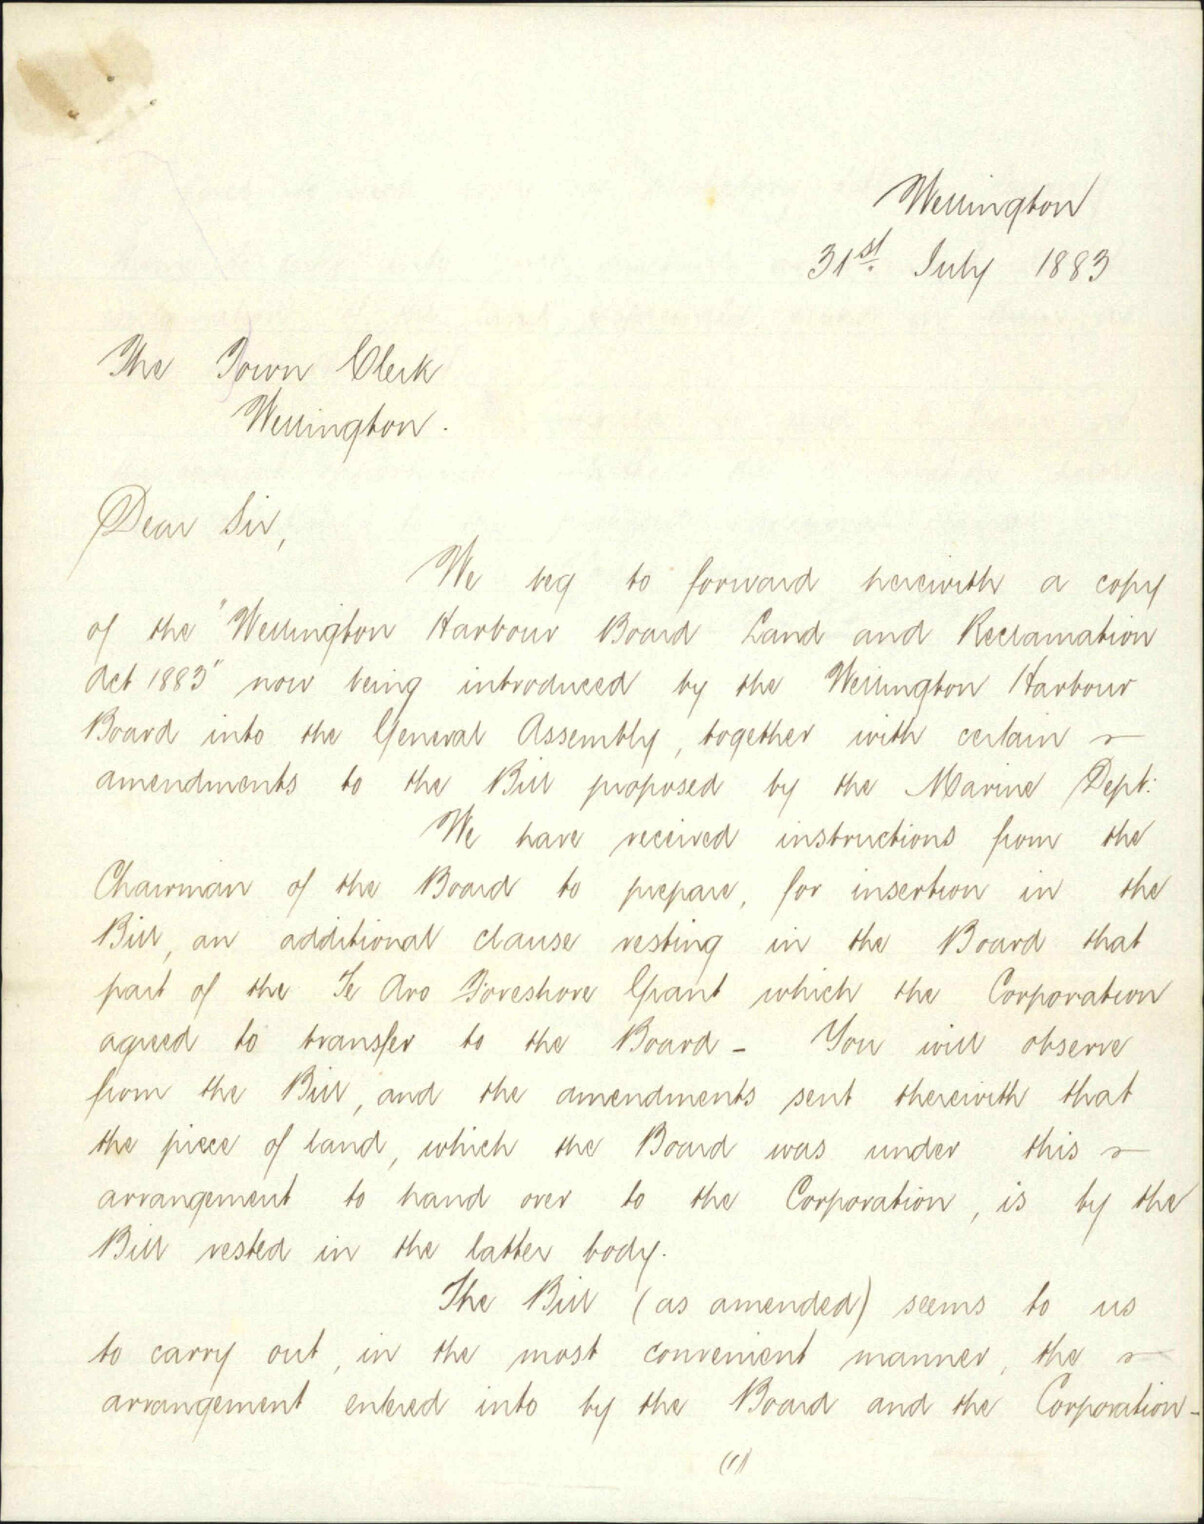 Wellington
31st. July 1883
The Town Clerk
Wellington.
Dear Sir,
We beg to forward herewith a copy
of the "Wellington Harbour Board Land and Reclamation
Act 1883" now being introduced by the Wellington Harbour
Board into the General Assembly, together with certain
amendments to the Bill proposed by the Marine Dept:
We have received instructions from the
Chairman of the Board to prepare, for insertion in the
Bill, an additional clause vesting in the Board that
part of the Te Aro Foreshore Grant which the Corporation
agreed to transfer to the Board - You will observe
from the Bill, and the amendments sent therewith that
the piece of land, which the Board was under this
arrangement to hand over to the Corporation, is by the
Bill vested in the latter body.
The Bill (as amended) seems to us
to carry out, in the most convenient manner, the
arrangement entered into by the Board and the Corporation-
(1)